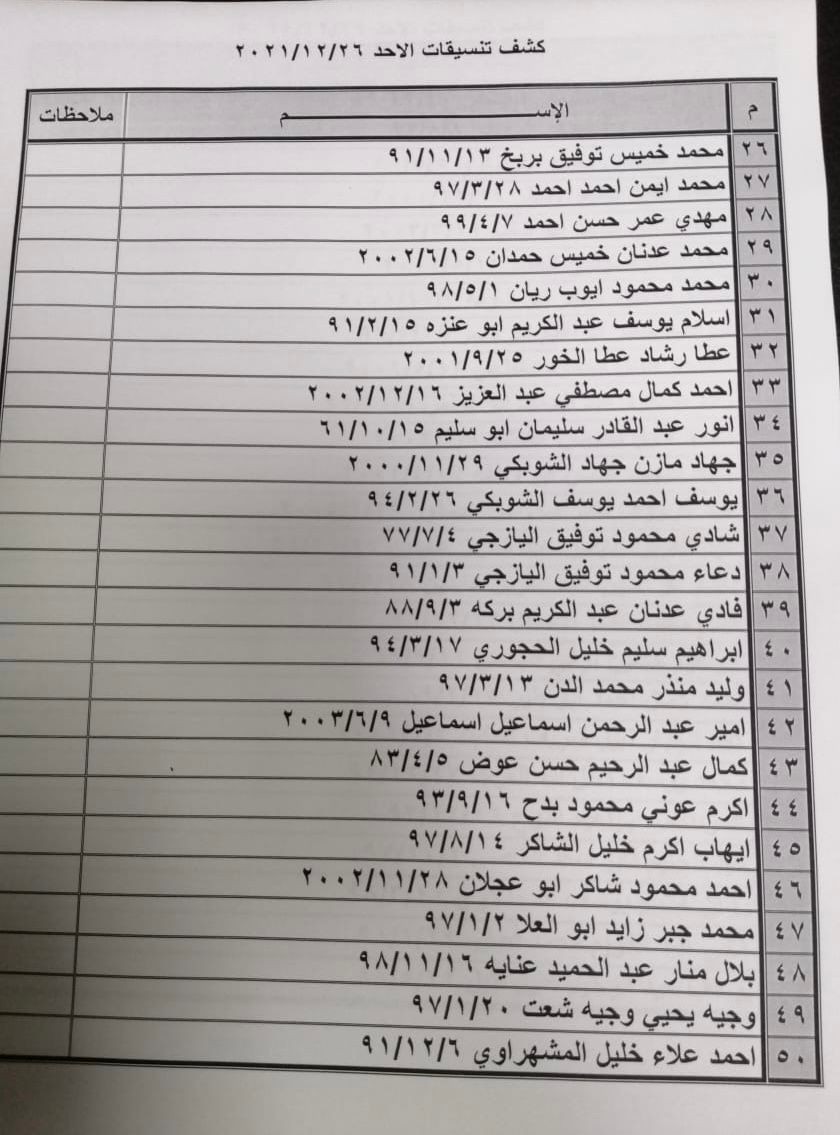 كشف تنسيقات الاحد ٢٠٢١/١٢/٢٦
م الإســـــــــم ملاحظات
٢٦ محمد خميس توفيق بربخ ٩١/١١/١٣
٢٧ محمد ايمن احمد احمد ٩٧/٣/٢٨
٢٨ مهدي عمر حسن احمد ٩٩/٤/٧
٢٩ محمد عدنان خميس حمدان ٢٠٠٢/٦/١٥
٣٠ محمد محمود ايوب ريان ٩٨/٥/١
٣١ اسلام يوسف عبد الكريم ابو عنزه ٩١/٢/١٥
٣٢ عطا رشاد عطا الخور ٢٠٠١/٩/٢٥
٣٣ احمد كمال مصطفي عبد العزيز ٢٠٠٢/١٢/١٦
٣٤ انور عبد القادر سليمان ابو سليم ٦١/١٠/١٥
٣٥ جهاد مازن جهاد الشوبكي ٢٠٠٠/١١/٢٩
٣٦ يوسف احمد يوسف الشوبكي ٩٤/٢/٢٦
٣٧ شادي محمود توفيق اليازجي ٧٧/٧/٤
٣٨ دعاء محمود توفيق اليازجي ٩١/١/٣
٣٩ فادي عدنان عبد الكريم بركه ٨٨/٩/٣
٤٠ ابراهيم سليم خليل الحجوري ٩٤/٣/١٧
٤١ وليد منذر محمد الدن ٩٧/٣/١٣
٤٢ امير عبد الرحمن اسماعيل اسماعيل ٢٠٠٣/٦/٩
٤٣ كمال عبد الرحيم حسن عوض ٨٣/٤/٥
٤٤ اكرم عوني محمود بدح ٩٣/٩/١٦
٤٥ ايهاب اكرم خليل الشاكر ٩٧/٨/١٤
٤٦ احمد محمود شاكر ابو عجلان ٢٠٠٢/١١/٢٨
٤٧ محمد جبر زايد ابو العلا ٩٧/١/٢
٤٨ بلال منار عبد الحميد عنايه ٩٨/١١/١٦
٤٩ وجيه يحيي وجيه شعت ٩٧/١/٢٠
٥٠ احمد علاء خليل المشهراوي ٩١/١٢/٦